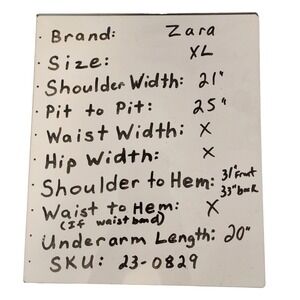 · Brand: Zara
· Size: XL
· Shoulder Width: 21"
· Pit to Pit: 25"
· Waist Width: X
· Hip Width: X
· Shoulder to Hem: 31" Front
33" back
· Waist to Hem: X
(If waistband)
· Underarm Length: 20"
· SKU: 23-0829